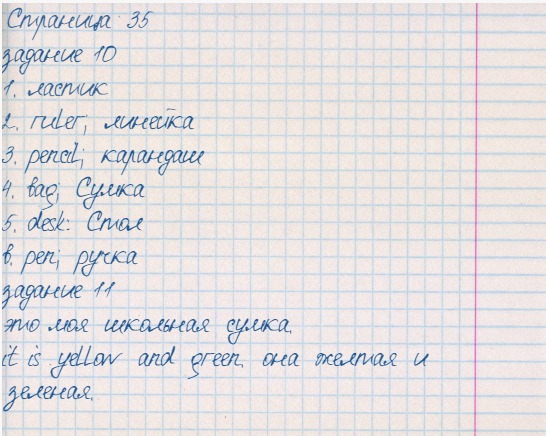 Страница 35
задание 10
1. ластик
2. ruler; линейка
3. pencil; карандаш
4. bag; Сумка
5. desk: Стол
6. pen; ручка
задание 11
это моя школьная сумка.
it is yellow and green. она желтая и
зеленая.